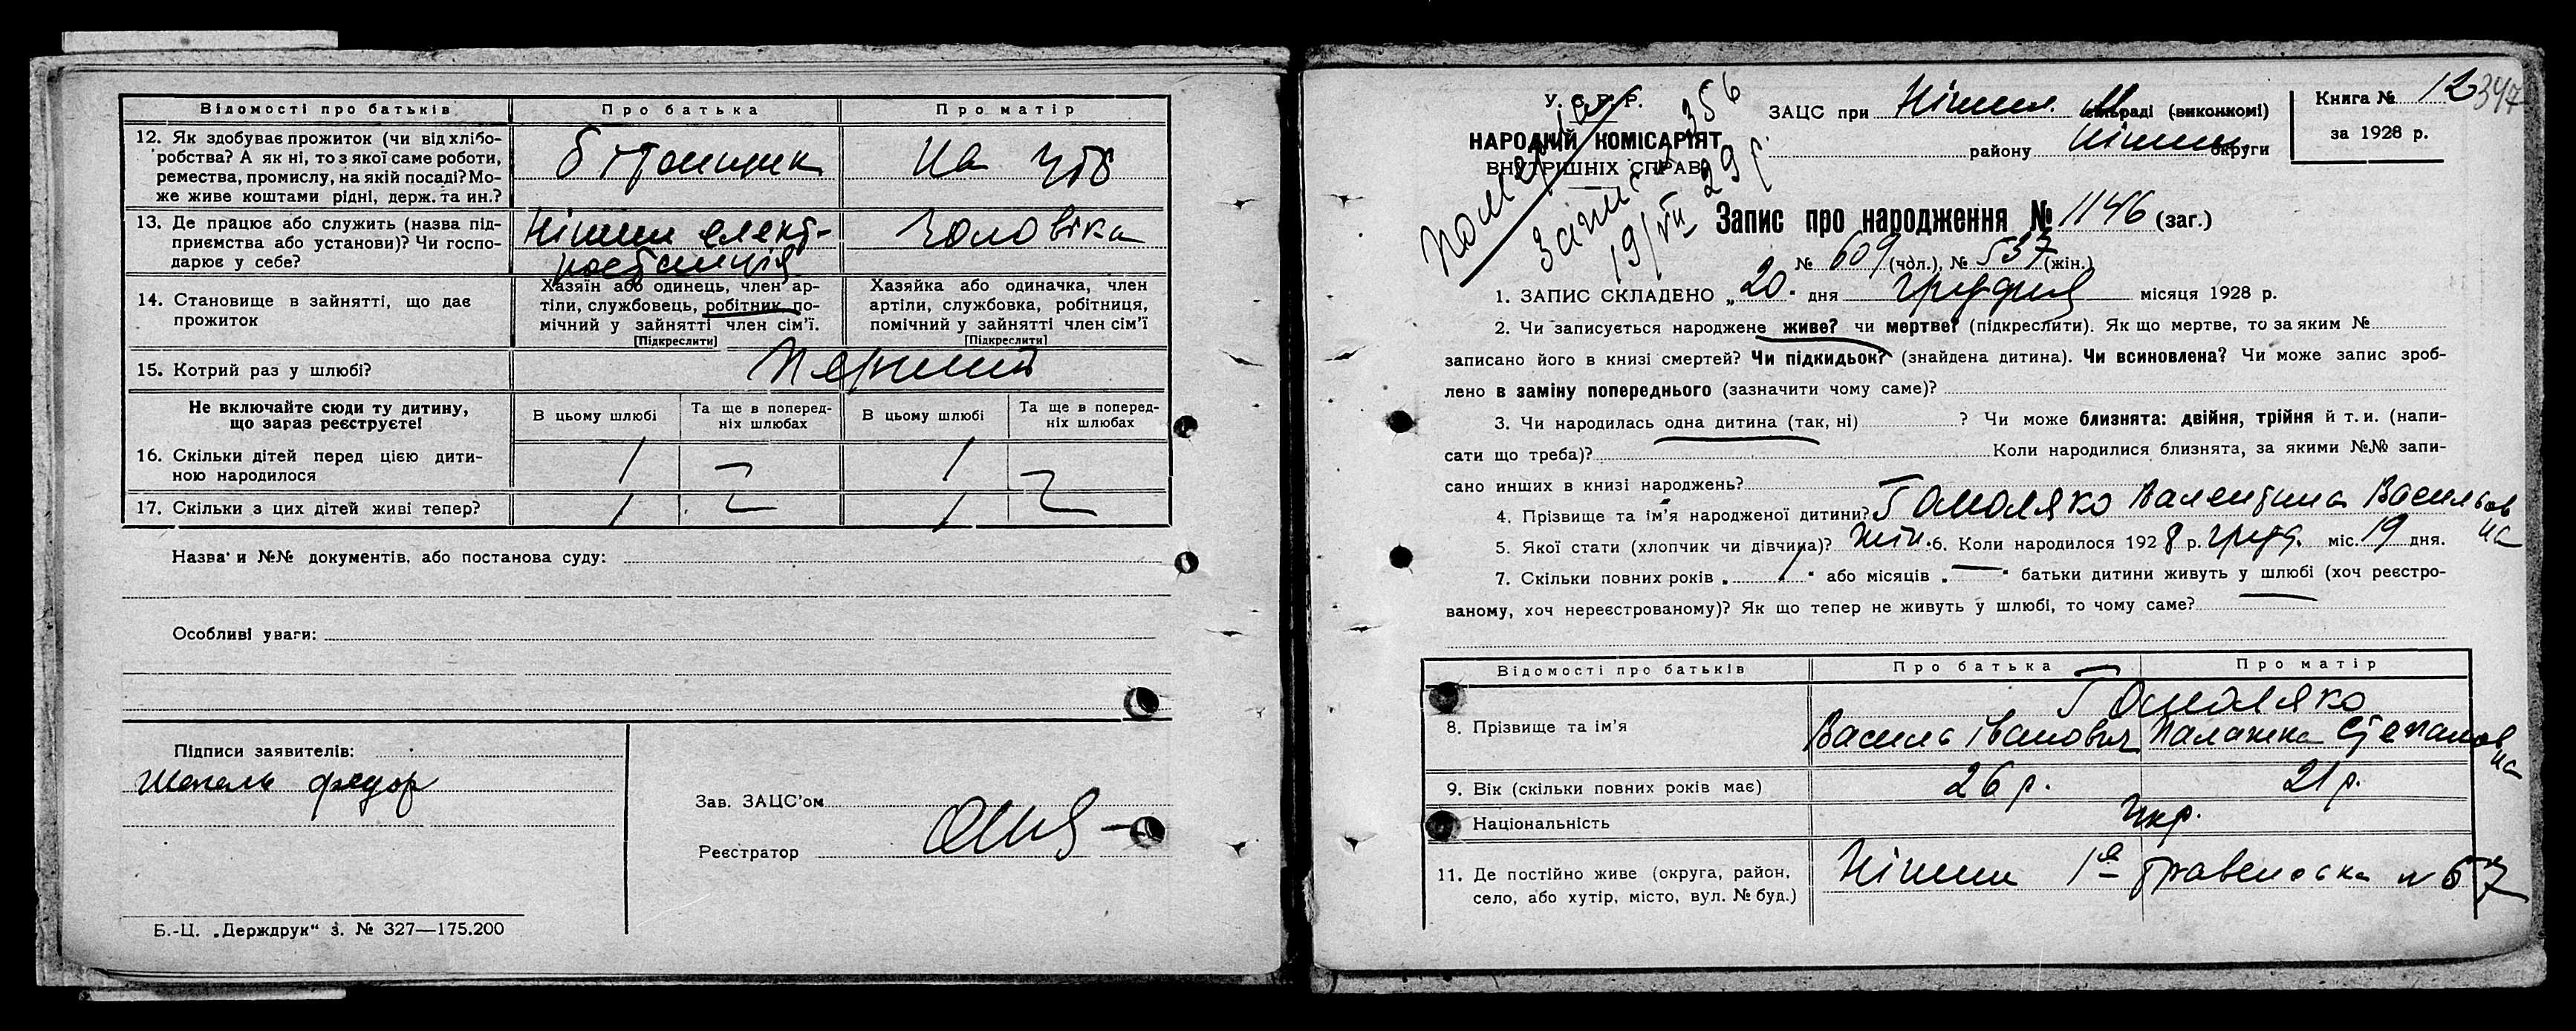 Відомості про батьків Про батька Про матір
12. Як здобуває прожиток (чи від хлібо-
робства? А як ні, то з якої саме роботи,
ремества, промислу, на якій посаді? Мо-
же живе коштами рідні, держ. та ин.?
На утр
13. Де працює або служить (назва під-
приємства або установи)? Чи госпо-
дарює у себе?
Ніжин елект-
ростанція
Чоловіка
14. Становище в зайнятті, що дає
прожиток
Хазяїн або одинець, член ар-
тілі, службовець, робітник, по-
мічний у зайнятті член сім'ї.
[Підкреслити]
Хазяйка або одиначка, член
артіли, службовка, робітниця,
помічний у зайнятті член сім'ї
[Підкреслити]
15. Котрий раз у шлюбі? Перший
Не включайте сюди ту дитину,
що зараз реєструєте!
В цьому шлюбі
Та ще в поперед-
ніх шлюбах
В цьому шлюбі
Та ще в поперед-
ніх шлюбах
16. Скільки дітей перед цією дити-
ною народилося
1 — 1 —
17. Скільки з цих дітей живі тепер? 1 — 1 —
Назва и №№ документів, або постанова суду:
Особливі уваги:
Підписи заявителів:
Федор
Зав. ЗАЦС'ом
Реєстратор
Б.-Ц. „Держдрук“ з. № 327—175.200
У. С. Р. Р.
НАРОДНІЙ КОМІСАРІЯТ
ВНУТРІШНІХ СПРАВ
Помер
Запис № 356
19/VII 29 р.
ЗАЦС при Ніжин. М раді (виконкомі)
району Ніжин. округи
Книга № 12
за 1928 р.
347
Запис про народження № 1146 (заг.)
№ 609 (чол.), № 537 (жін.)
1. ЗАПИС СКЛАДЕНО „20“ дня грудня місяця 1928 р.
2. Чи записується народжене живе? чи мертве? (підкреслити). Як що мертве, то за яким №
записано його в книзі смертей? Чи підкидьок? (знайдена дитина). Чи всиновлена? Чи може запис зроб-
лено в заміну попереднього (зазначити чому саме)?
3. Чи народилась одна дитина (так, ні) ? Чи може близнята: двійня, трійня й т. и. (напи-
сати що треба)? Коли народилися близнята, за якими №№ запи-
сано инших в книзі народжень?
4. Прізвище та ім'я народженої дитини? Гомоляко Валентина Васильов
на
5. Якої стати (хлопчик чи дівчина)? жін. 6. Коли народилося 1928 р. груд. міс. 19 дня.
7. Скільки повних років „ “ або місяців „—“ батьки дитини живуть у шлюбі (хоч реєстро-
ваному, хоч нереєстрованому)? Як що тепер не живуть у шлюбі, то чому саме?
Відомості про батьків Про батька Про матір
8. Прізвище та ім'я
Гомоляко
Василь Іванович Палажка Степанов
на
9. Вік (скільки повних років має) 26 р. 21 р.
Національність Укр.
11. Де постійно живе (округа, район,
село, або хутір, місто, вул. № буд.)
Ніжин 1а № 67